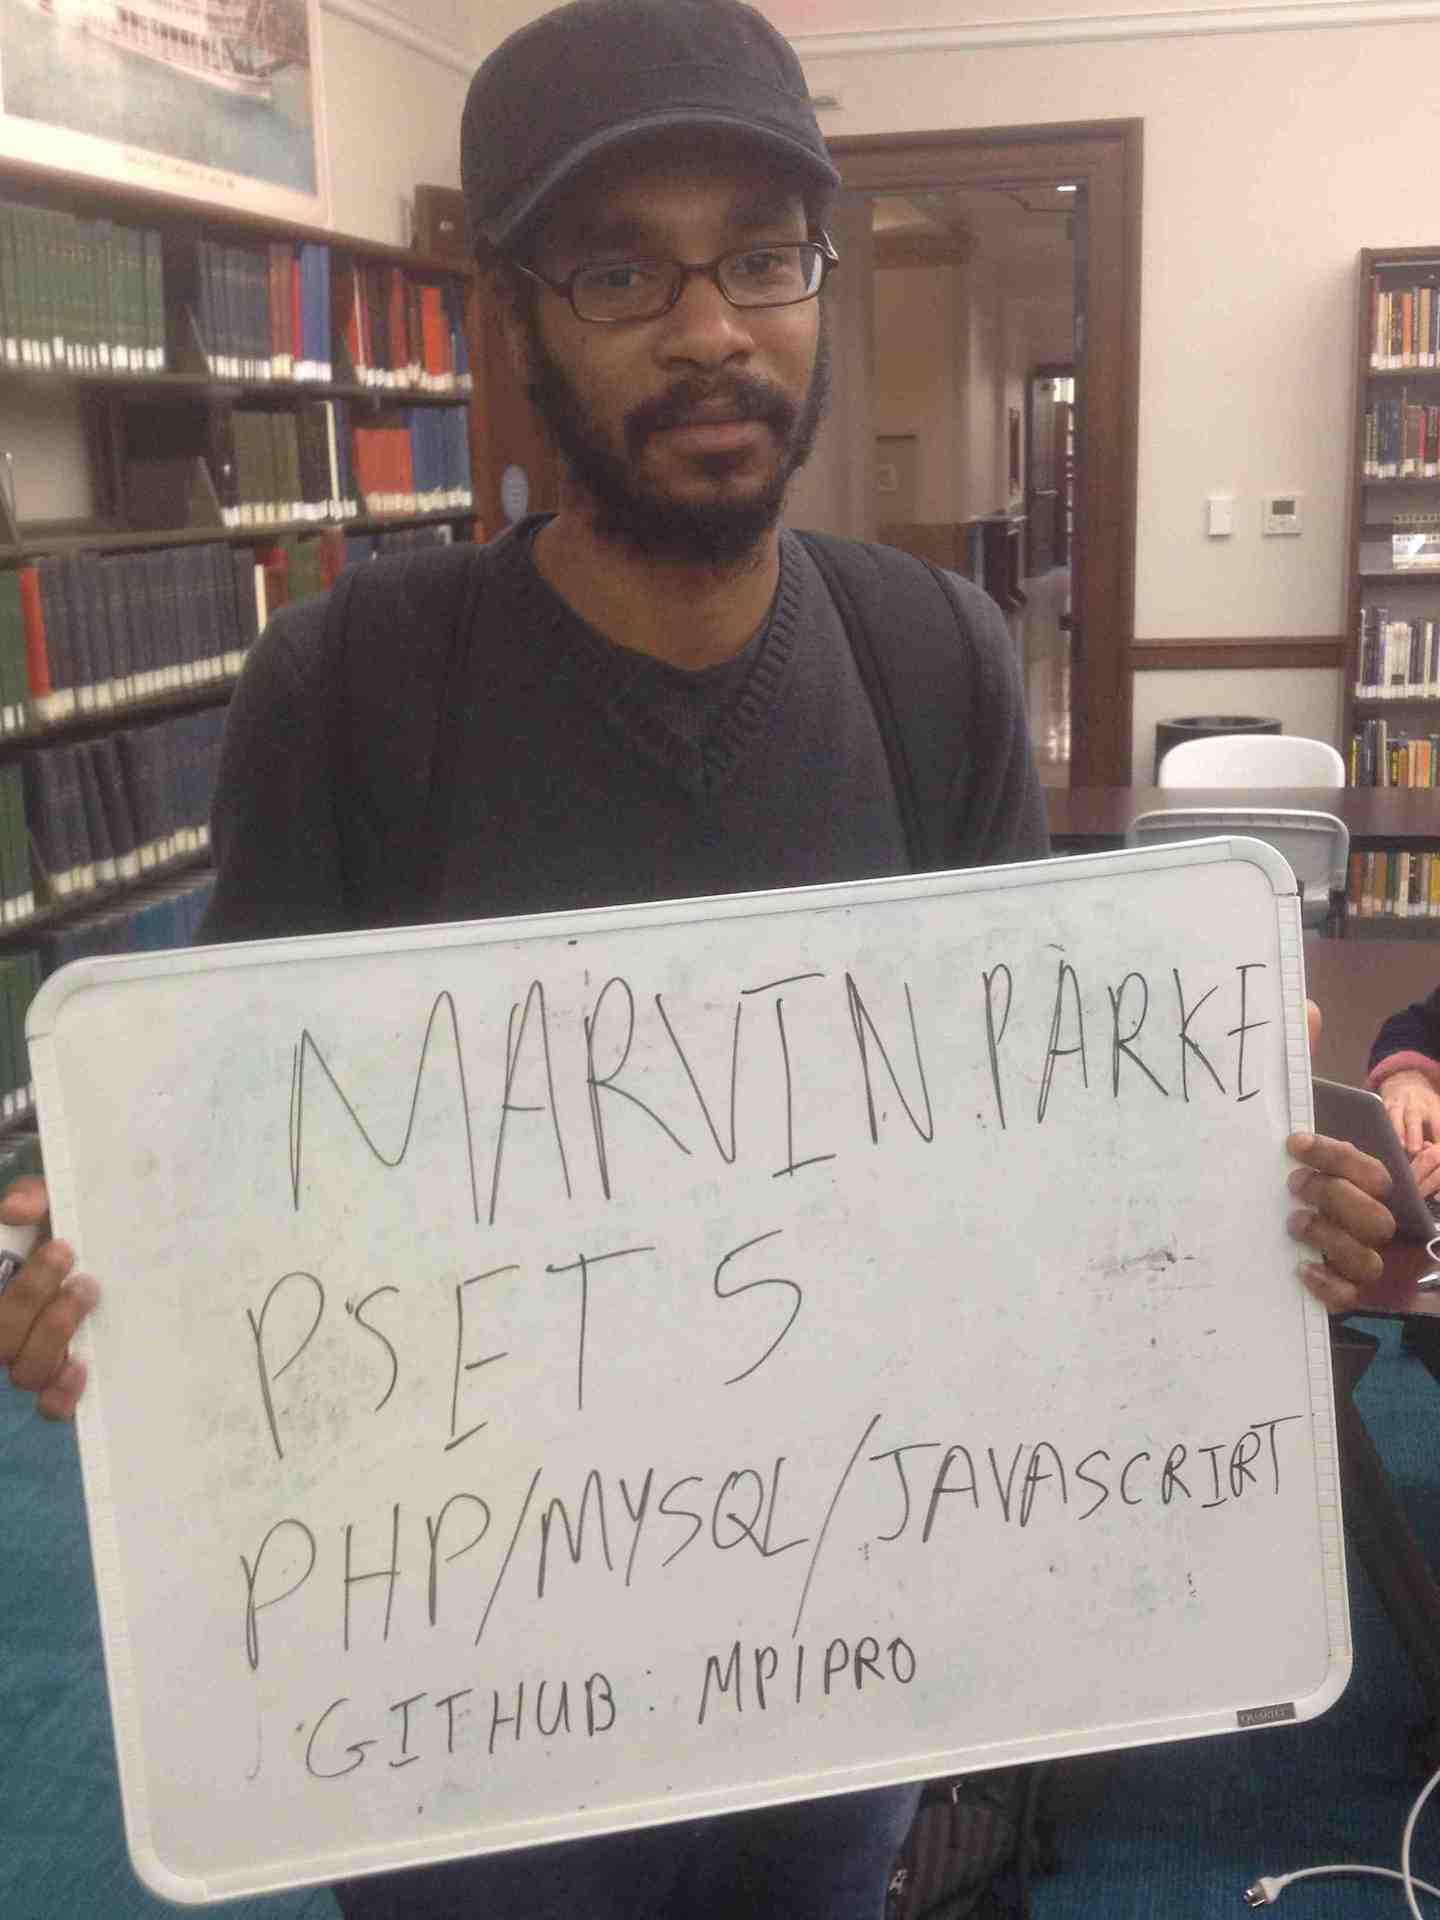 MARVIN PARKE
PSET 5
PHP/MYSQL/JAVASCRIRT
GITHUB: MPIPRO
QUARTET